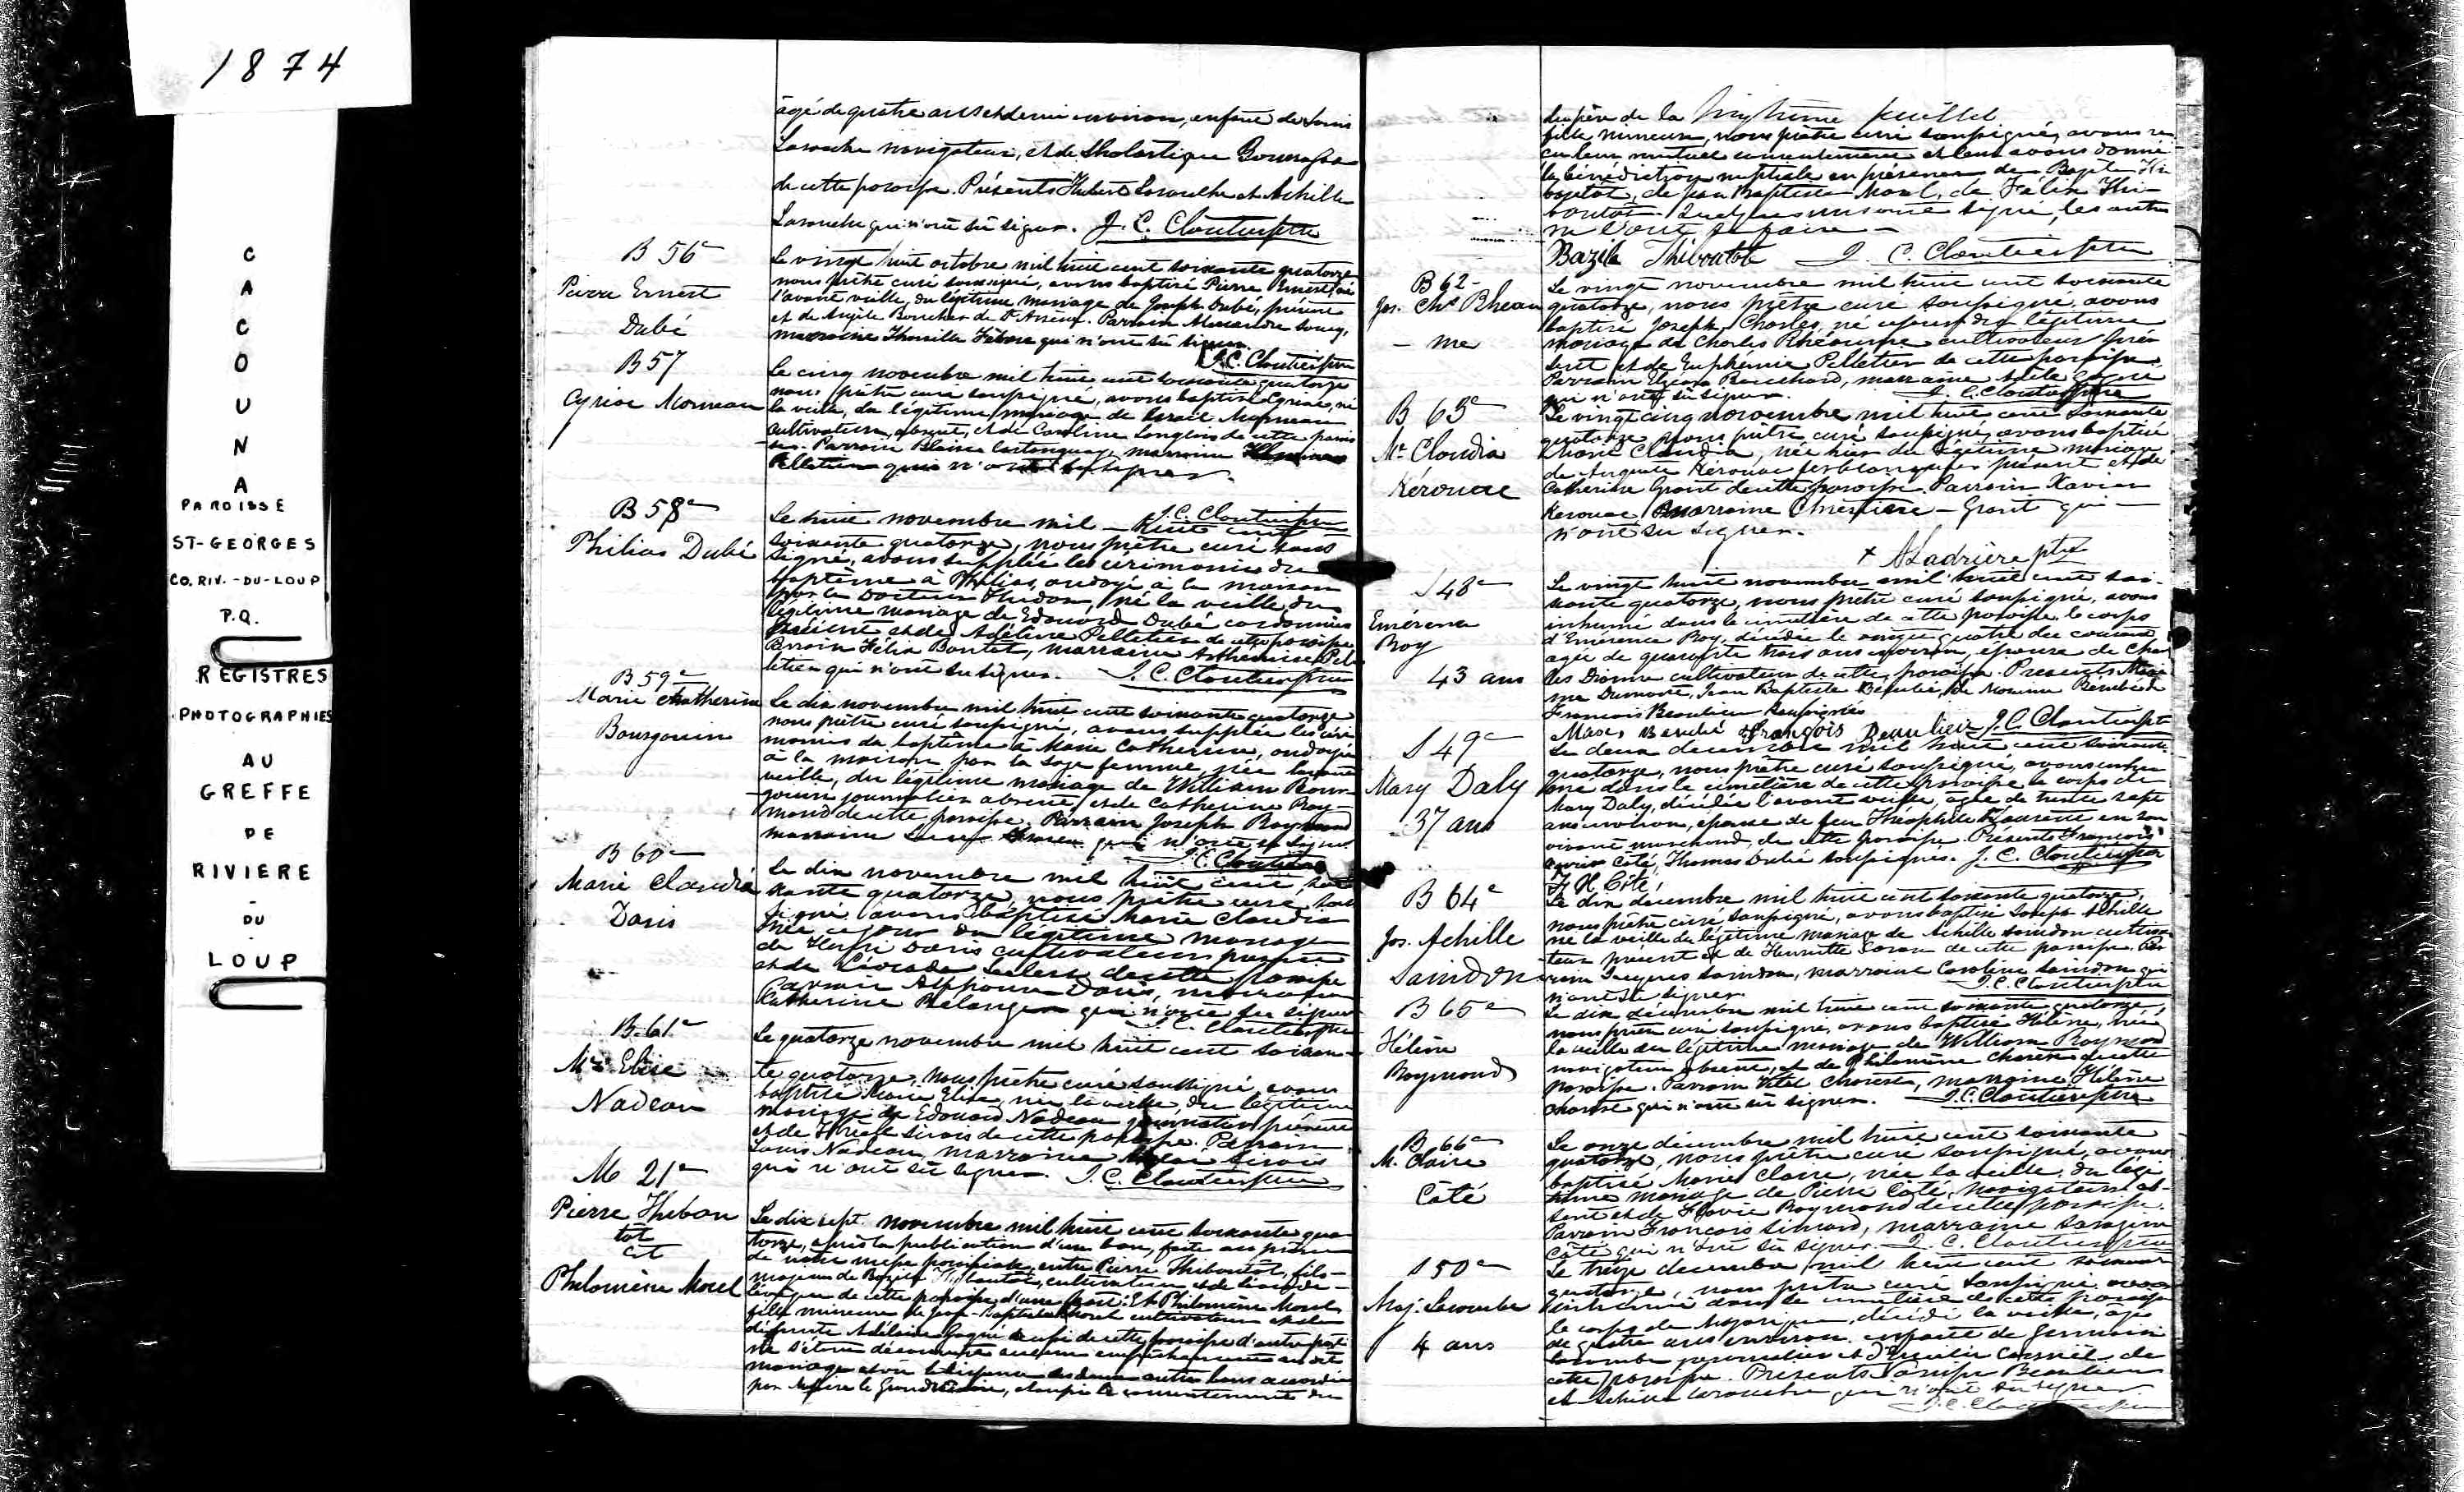 1874
CACOUNA
PAROISSE
ST-GEORGES
CO. RIV.-DU-LOUP
P.Q.
REGISTRES
PHOTOGRAPHIES
AU
GREFFE
DE
RIVIERE
-
DU
-
LOUP
âgé de quatre ans et demi environ, enfant de Louis
Larouche navigateur, et de Scholastique
de cette paroisse. Présents Hubert Larouche et Achille
Larouche qui n'ont su signer. J. C. Cloutier ptre
B 56e
Pierre Ernest
Dubé
Le vingt huit octobre mil huit cent soixante quatorze
nous prêtre curé soussigné, avons baptisé Pierre Ernest né
l'avant veille, du légitime mariage de Joseph Dubé, présent
et de Angèle Boucher de St Arsène. Parrain Alexandre Soucy,
marraine qui n'ont su signer.
J. C. Cloutier ptre
B 57
Cyriac Morneau
Le cinq novembre mil huit cent soixante quatorze
nous prêtre curé soussigné, avons baptisé Cyriac, né
la veille, du légitime mariage de Israël Morneau
cultivateur, absent, et de Caroline Langlois de cette parois
se. Parrain Blaise Castonguay, marraine
Pelletier qui n'ont su signer.
J. C. Cloutier ptre
B 58e
Philias Dubé
Le huit novembre mil - huit cent
soixante quatorze, nous prêtre curé sous
signé, avons suppléé les cérémonies du
baptême à Philias, ondoyé à la maison
par le Docteur, né la veille du
légitime mariage de Edouard Dubé cordonnier
présent et de Adéline Pelletier de cette paroisse
Parrain Félix Boutet, marraine Arthémise Pel
letier qui n'ont su signer. J. C. Cloutier ptre
B 59e
Marie Catherine
Bourgouin
Le dix novembre mil huit cent soixante quatorze
nous prêtre curé soussigné, avons suppléé les céré
monies du baptême à Marie Catherine, ondoyée
à la maison par la sage femme, née l'avant
veille, du légitime mariage de William Bour
gouin journalier absent, et de Catherine Ray-
mond de cette paroisse. Parrain Joseph Raymond
marraine qui n'ont su signer
J. C. Cloutier ptre
B 60e
Marie Claudia
Davis
Le dix novembre mil huit cent soi
xante quatorze, nous prêtre curé sous
signé avons baptisé Marie Claudia
née ce jour du légitime mariage
de Henri Davis cultivateur présent
et de Léocadie Leclerc de cette paroisse
Parrain Alphonse Davis, marraine
Catherine Belanger qui n'ont su signer
J. C. Cloutier ptre
B. 61e
Mie Elise
Nadeau
Le quatorze novembre mil huit cent soixan-
te quatorze, nous prêtre curé soussigné, avons
baptisé Marie Elise, née la veille du légitime
mariage de Edouard Nadeau journalier présent
et de Sirois de cette paroisse. Parrain
Louis Nadeau, marraine Sirois
qui n'ont su signer. J. C. Cloutier ptre
M 21e
Pierre Thibou
tôt
et
Philomène Morel
Le dix sept novembre mil huit cent soixante qua
torze, après la publication d'un ban, faite au prône
de notre messe paroissiale, entre Pierre Thiboutôt, fils -
majeur de Bazile Thiboutôt, cultivateur et de
de cette paroisse d'une part: Et Philomène Morel
fille mineure de Jean-Baptiste Morel cultivateur et de
défunte Adélaïde Gagné aussi de cette paroisse d'autre part
ne s'étant découvert aucun empêchement au dit
mariage et vu la dispense des deux autres bans accordée
par le Grand Vicaire, et aussi le consentement du
Dixième feuillet
du père de la
fille mineure, nous prêtre curé soussigné, avons re
çu leur mutuel consentement et leur avons donné
la bénédiction nuptiale en présence de Bazile Thi
boutôt, de Jean Baptiste Morel, de Félix Thi-
boutôt. Quelques uns ont signé, les autres
n'ont pu faire -
Bazile Thiboutot J. C. Cloutier ptre
B 62 -
Jos. Chs Rheau
- me
Le vingt novembre mil huit cent soixante
quatorze, nous prêtre curé soussigné, avons
baptisé Joseph Charles, né ce jour du légitime
mariage de Charles Rhéaume cultivateur pré
sent et de Euphémie Pelletier de cette paroisse
Parrain Bouchard, marraine
qui n'ont su signer. J. C. Cloutier ptre
B 63e
Me Claudia
Kérouac
Le vingt cinq novembre mil huit cent soixante
quatorze nous prêtre curé soussigné, avons baptisé
Marie Claudia, née hier du légitime mariage
de Auguste Kérouac ferblanquier présent et de
Catherine Grant de cette paroisse. Parrain Xavier
Kerouac Marraine - Grant qui -
n'ont su signer.
+ A Ladrière ptre
S 48e
Emérence
Roy
43 ans
Le vingt huit novembre mil huit cent soi-
xante quatorze, nous prêtre curé soussigné, avons
inhumé dans le cimetière de cette paroisse le corps
d'Emérence Roy, décédée le vingt quatre du courant
agée de quarante trois ans environ, épouse de Char
les Dionne cultivateur de cette paroisse. Présents
Dumont, Jean Baptiste Beaulieu, de
François Beaulieu soussignés
François Beaulieu J. C. Cloutier ptre
S 49e
Mary Daly
37 ans
Le deux décembre mil huit cent soixante
quatorze, nous prêtre curé soussigné, avons inhu
mé dans le cimetière de cette paroisse le corps de
Mary Daly, décédée l'avant veille, agée de trente sept
ans environ, épouse de feu Théophile en son
vivant marchand, de cette paroisse. Présents François
Côté, Thomas Dubé soussignés. J. C. Cloutier ptre
F X Côté,
B 64e
Jos. Achille
Saindon
Le dix décembre mil huit cent soixante quatorze,
nous prêtre curé soussigné, avons baptisé Joseph Achille
né la veille du légitime mariage de Achille Saindon cultiva
teur présent et de Henriette de cette paroisse. Par
rain Jacques Saindon, marraine Caroline Saindon qui
n'ont su signer. J. C. Cloutier ptre
B 65e
Hélène
Raymond
Le dix décembre mil huit cent soixante quatorze,
nous prêtre curé soussigné, avons baptisé Hélène, née
la veille du légitime mariage de William Raymond
navigateur absent, et de Philomène de cette
paroisse. Parrain, marraine Hélène
qui n'ont su signer. J. C. Cloutier ptre
B 66e
M. Claire
Côté
Le onze décembre mil huit cent soixante
quatorze, nous prêtre curé soussigné, avons
baptisé Marie Claire, née la veille, du légi
time mariage de Pierre Côté, navigateur ab-
sent et de Flavie Raymond de cette paroisse.
Parrain François Simard, marraine
Côté qui n'ont su signer. J. C. Cloutier ptre
S 50e
Maj. Lacombe
4 ans
Le treize décembre mil huit cent soixante
quatorze, nous prêtre curé soussigné avons
inhumé dans le cimetière de cette paroisse
le corps de, décédé la veille, agé
de quatre ans environ, enfant de Germain
Lacombe journalier et de de
cette paroisse. Présents Beaulieu
et Achille Larouche qui n'ont su signer
J. C. Cloutier ptre